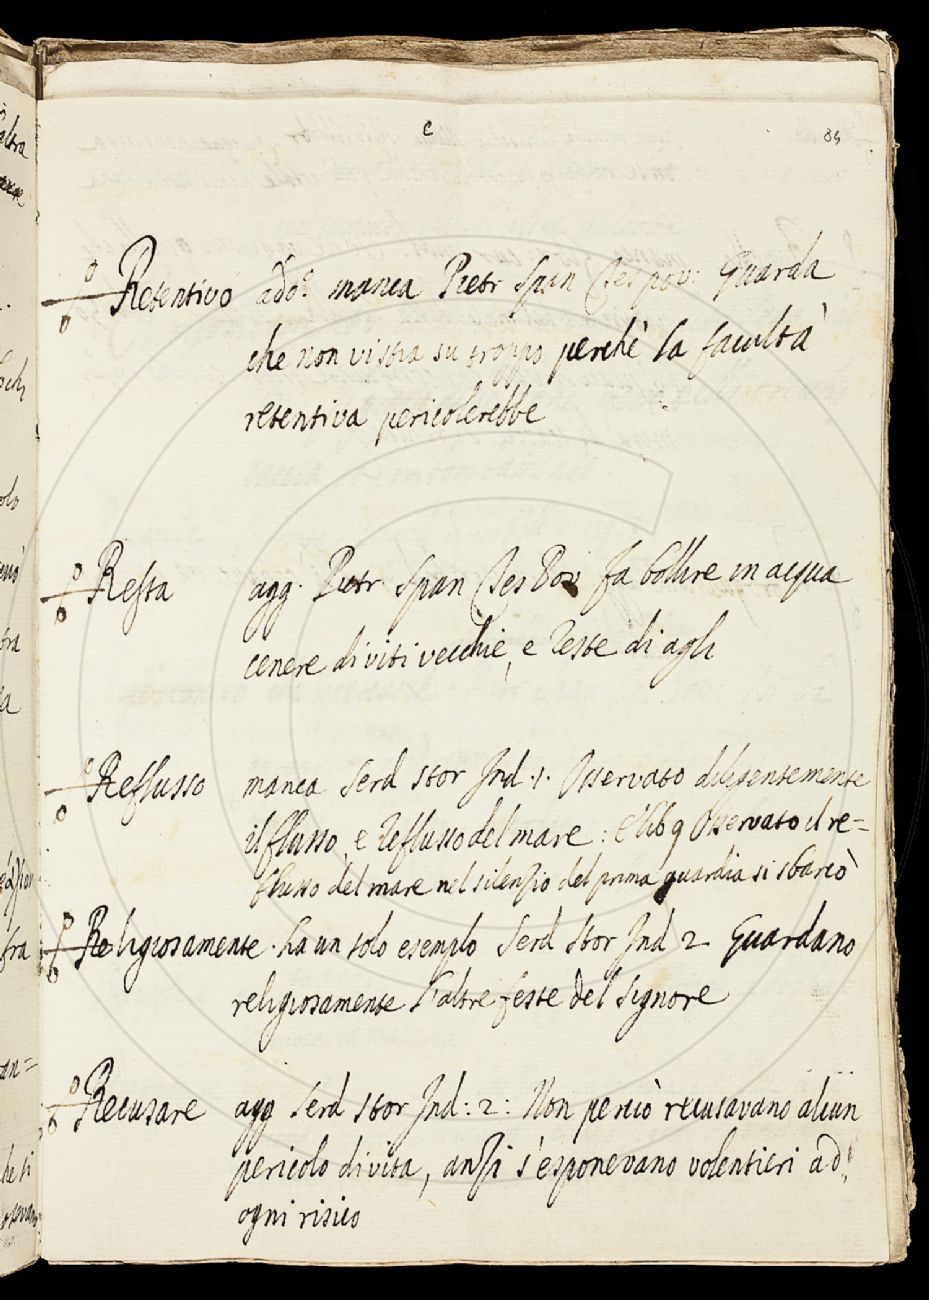 e
Retentivo add.º manca Pietr Span Tes pov: Guarda
che non vi stia su troppo perchè la facultà
retentiva pericolerebbe
Resta agg. Pietr Span Tes Pov fa bollire in acqua
cenere di viti vecchie, e reste di agli
Reflusso manca Serd stor Ind. 1. Osservato diligentemente
il flusso, e reflusso del mare: E lib 9 Osservato il re=
flusso del mare nel silenzio del prima guardia si sbarcò
Religiosamente. ha un solo esemplo Serd Stor Ind 2 Guardano
religiosamente l'altre feste del Signore
Recusare agg Serd stor Ind: 2: Non perciò recusavano alcun
pericolo di vita, anzi s'esponevano volentieri ad
ogni risico